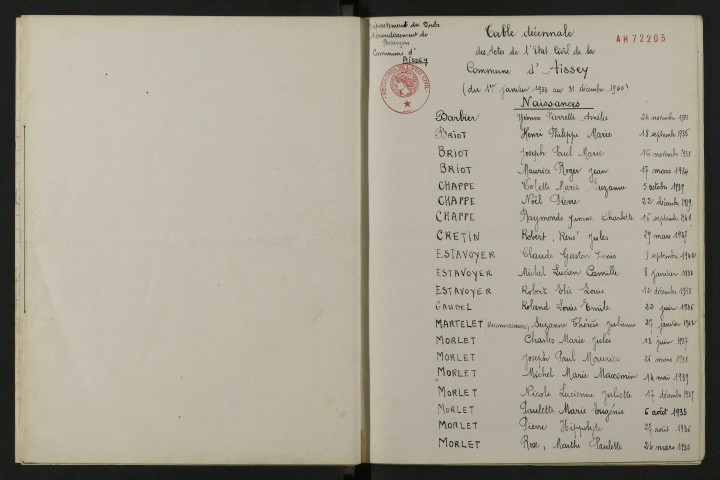 Département du Doubs
Arrondissement de
Besançon
Commune d'
Aïssey
Table décennale
AH72205
des Actes de l'Etat Civil de la
Commune d' Aissey
(du 1er janvier 1933 au 31 décembre 1942)
Naissances
Barbier Yvonne Pierrette Amélie novembre
BRIOT Henri Philippe Marie 18 septembre 1935
BRIOT Joseph Paul Marie 15 novembre 1938
BRIOT Maurice Roger Jean 17 mars 1934
CHAPPE Colette Marie Suzanne 5 octobre 1937
CHAPPE Noël Pierre 22 décembre 1939
CHAPPE Raymonde Janine Charlotte 16 septembre 1941
CRETIN Robert, René Jules 29 mars
ESTAVOYER Claude Gaston Denis septembre 1942
ESTAVOYER Michel Lucien Camille 8 janvier 1936
ESTAVOYER Robert Elie Louis 12 décembre 1935
GAUDEL Roland Louis Emile 22 juin 1936
MARTELET (Reconnaissance) Suzanne Thérèse Julienne 27 janvier 1942
MORLET Charles Marie Jules 13 juin 1937
MORLET Joseph Paul Maurice mars 1938
MORLET Michel Marie Maximin 14 mai 1939
MORLET Nicole Lucienne Juliette 17 décembre 1937
MORLET Paulette Marie Eugénie 6 août 1933
MORLET Pierre Hippolyte 25 août 1936
MORLET Rose, Marthe Paulette 24 mars 1935